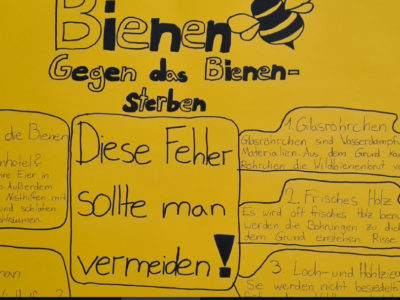 Bienen
Gegen das Bienen-
sterben
die Bienen
nhotel?
re Eier in
Außerdem
Nisthilfen mit
und schlafen
Diese Fehler
sollte man
vermeiden!
1. Glasröhrchen
Glasröhrchen sind Wasserdampfu
Materialien. Aus dem Grund ka
Röhrchen die Wildbienenbrut ve
2. Frisches Holz
Es wird oft frisches Holz benu
werden die Bohrungen zu dich
dem Grund enstehen Risse
3. Loch- und Hohlzieg
Sie werden nicht besiedelt
man